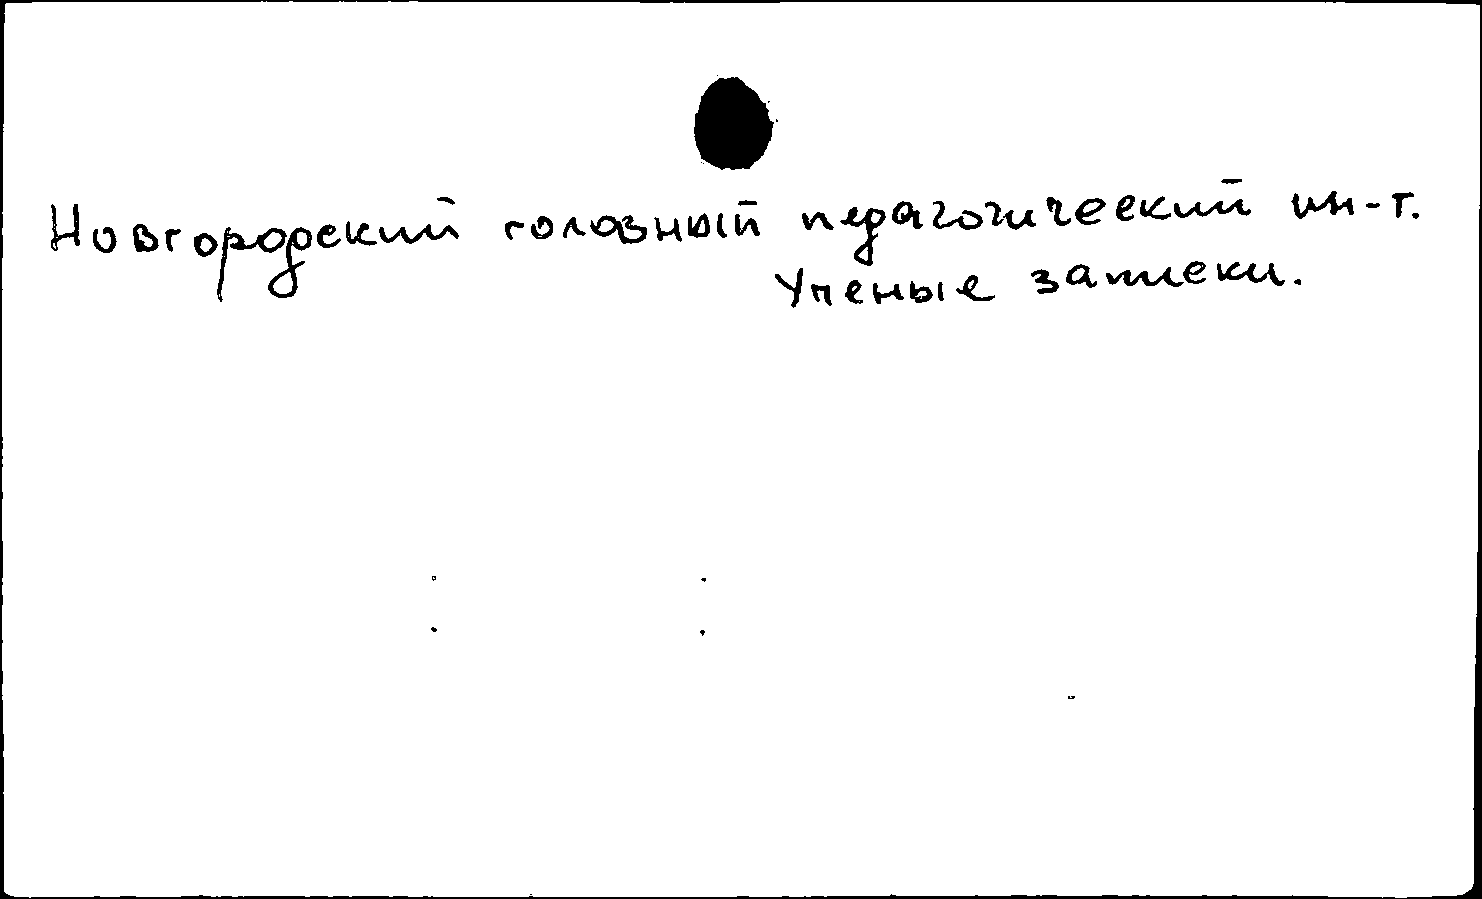 Новгородский головный педагогический ин-т.
Ученые записки.